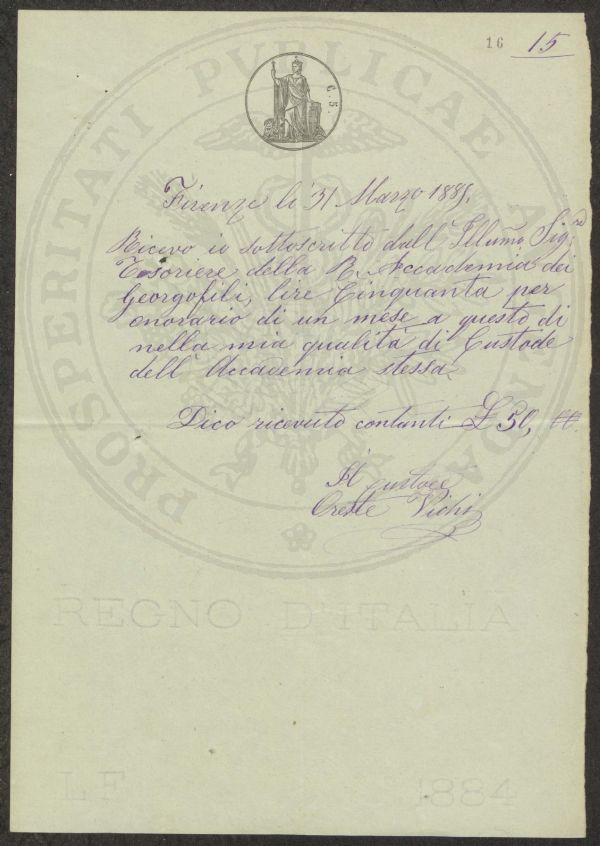 16 15
C. 5.
Firenze li 31 Marzo 1885.
Ricevo io sottoscritto dall' Illumo. Sig.
Tesoriere della R. Accademia dei
Georgofili, lire Cinquanta per
onorario di un mese a questo dì
nella mia qualità di Custode
dell' Accademia stessa
Dico ricevuto contanti £ 50,
Il Custode
Oreste Vichi
PROSPERITATI PUBLICAE
REGNO D'ITALIA
LF 1884